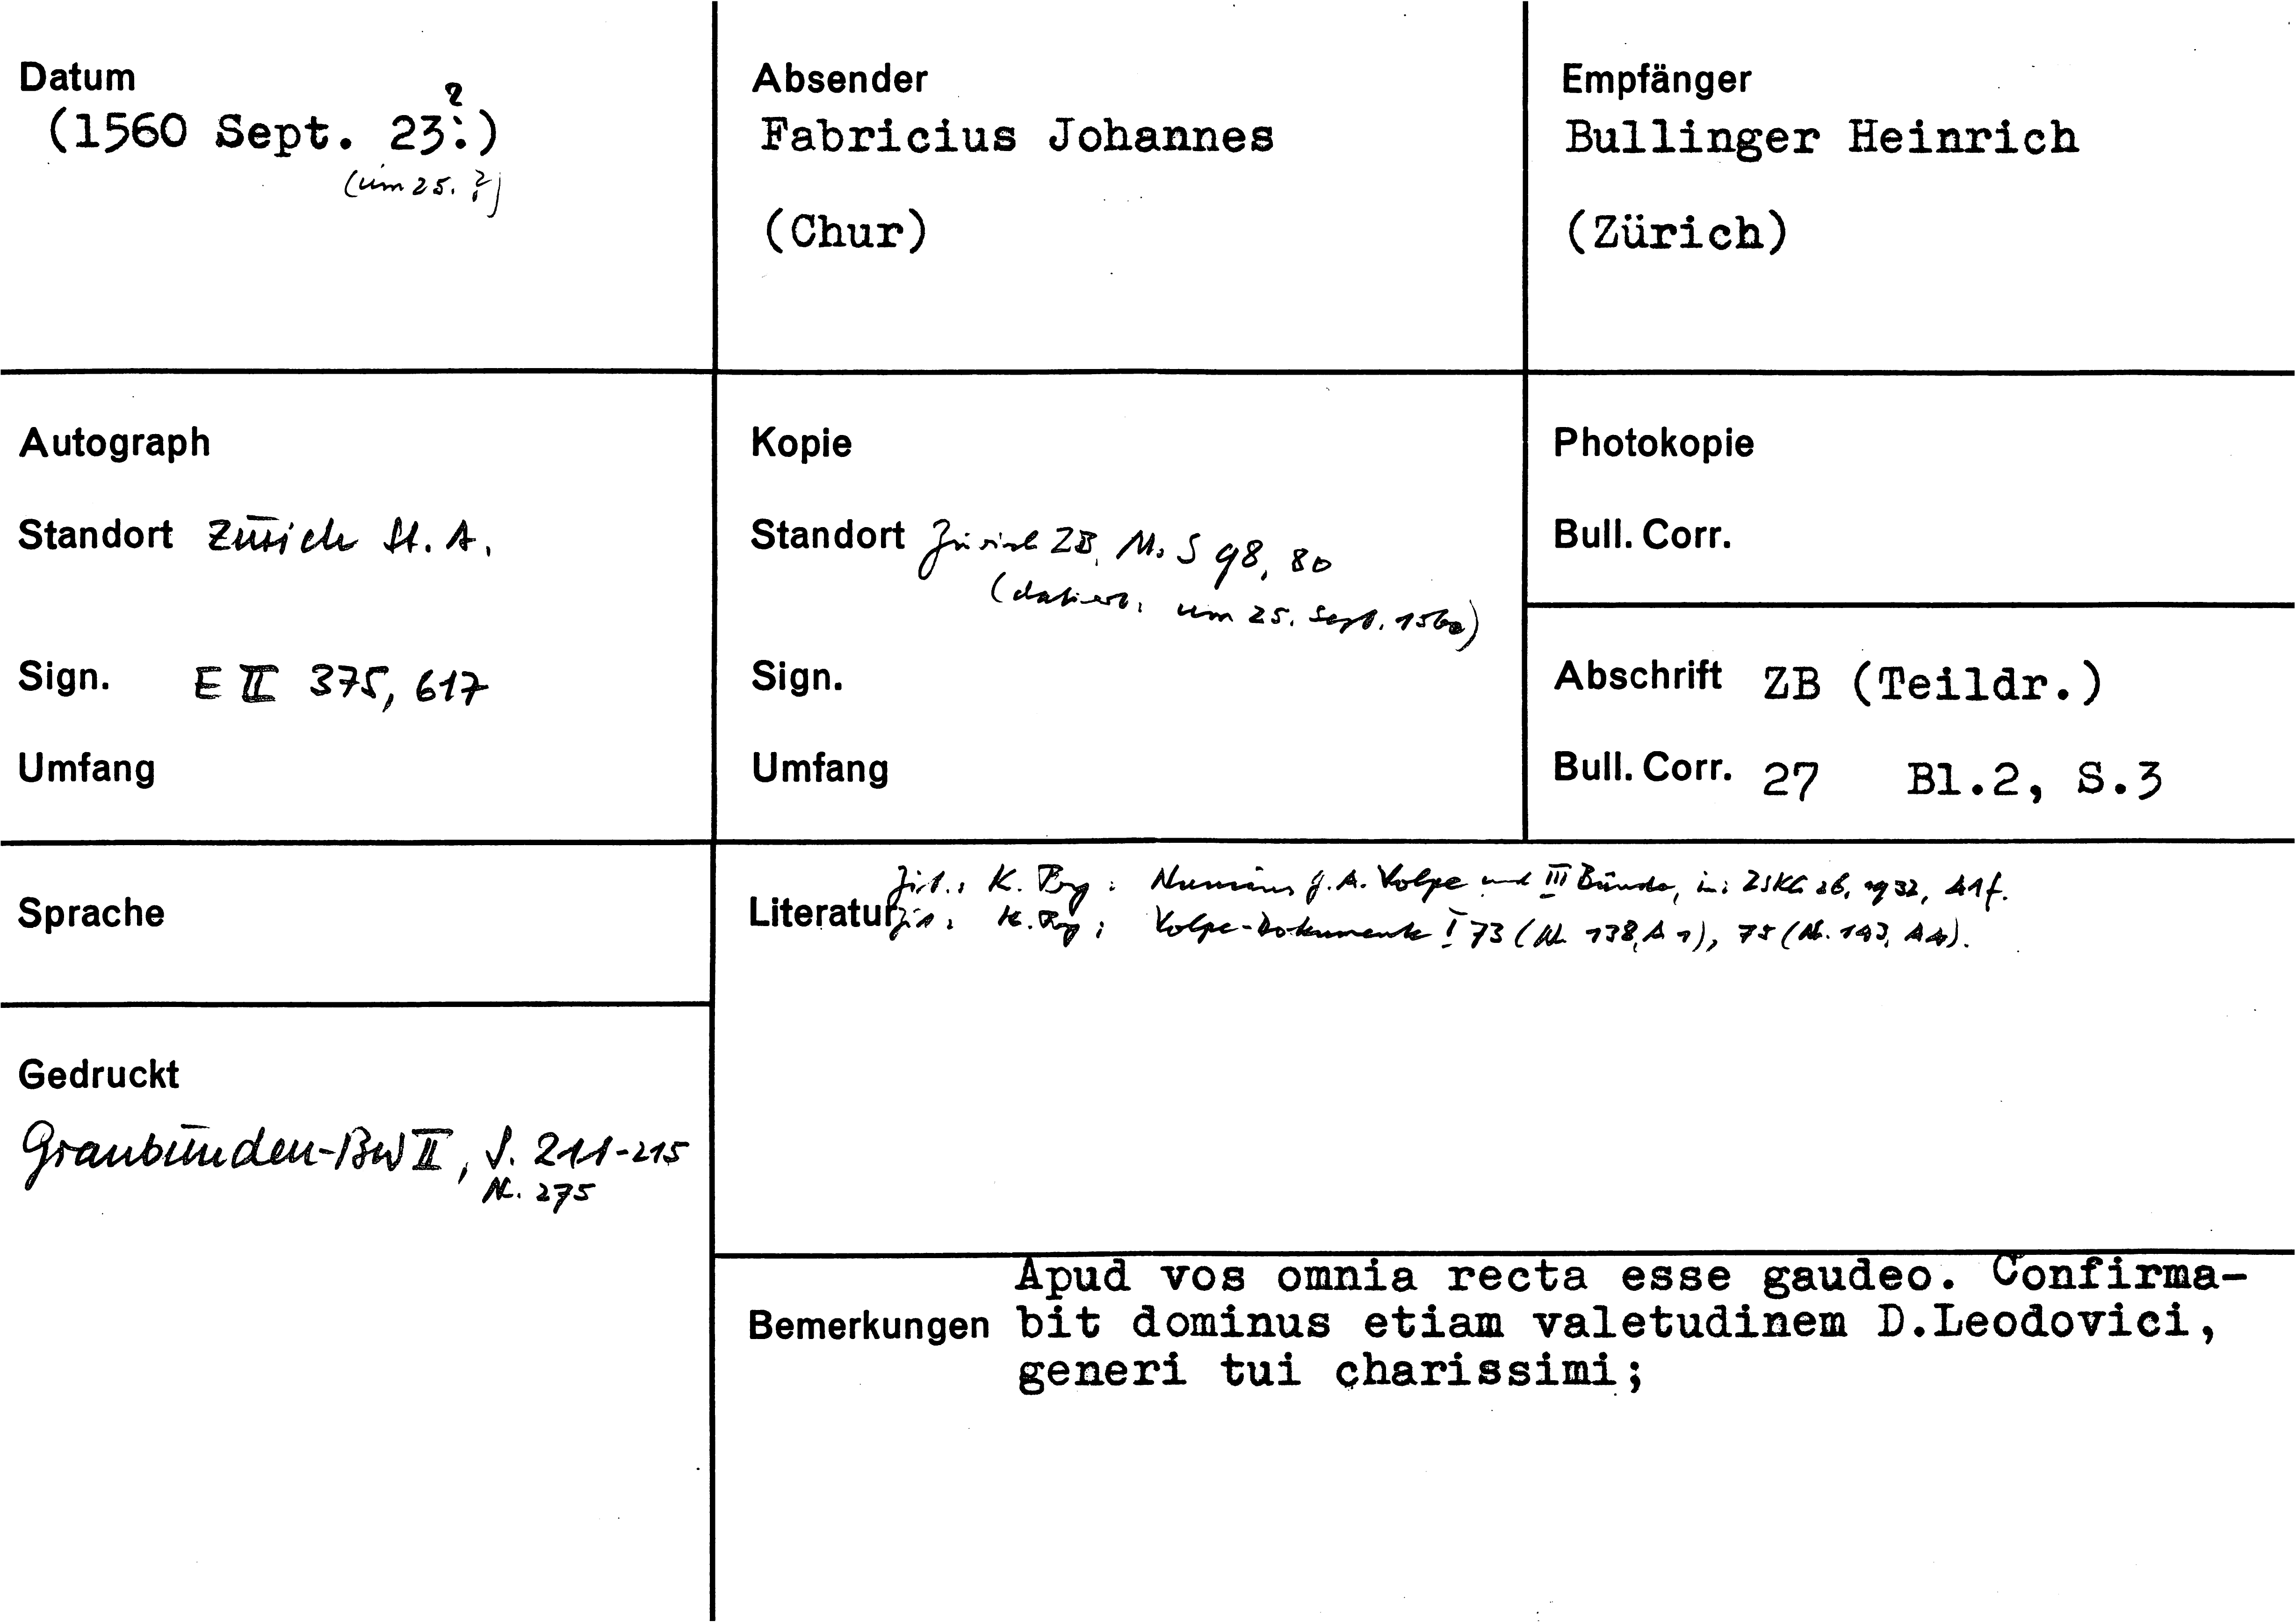 Datum
(1560 Sept. 23?.)
(um 25. ?)
Absender
Fabricius Johannes
(Chur)
Empfänger
Bullinger Heinrich
(Zürich)
Autograph
Standort Zürich St. A.
Sign. E II 375, 617
Umfang
Kopie
Standort Zürich ZB, Ms S 98, 80
(datiert: um 25. Sept. 1560)
Sign.
Umfang
Photokopie
Bull. Corr.
Abschrift ZB (Teildr.)
Bull. Corr. 27 Bl.2, S.3
Sprache
Zit.: K. : Nuntius J. A. Volpe und III Bünde, in: ZSKG 26, 1932, 41f.
Literatur Zit.: K. : Volpe-Dokumente I 73 (Nr. 138, A 1), 75 (Nr. 143, A 4).
Gedruckt
Graubünden-BW II, S. 211-215
Nr. 275
Apud vos omnia recta esse gaudeo. Confirma-
Bemerkungen bit dominus etiam valetudinem D.Leodovici,
generi tui charissimi;